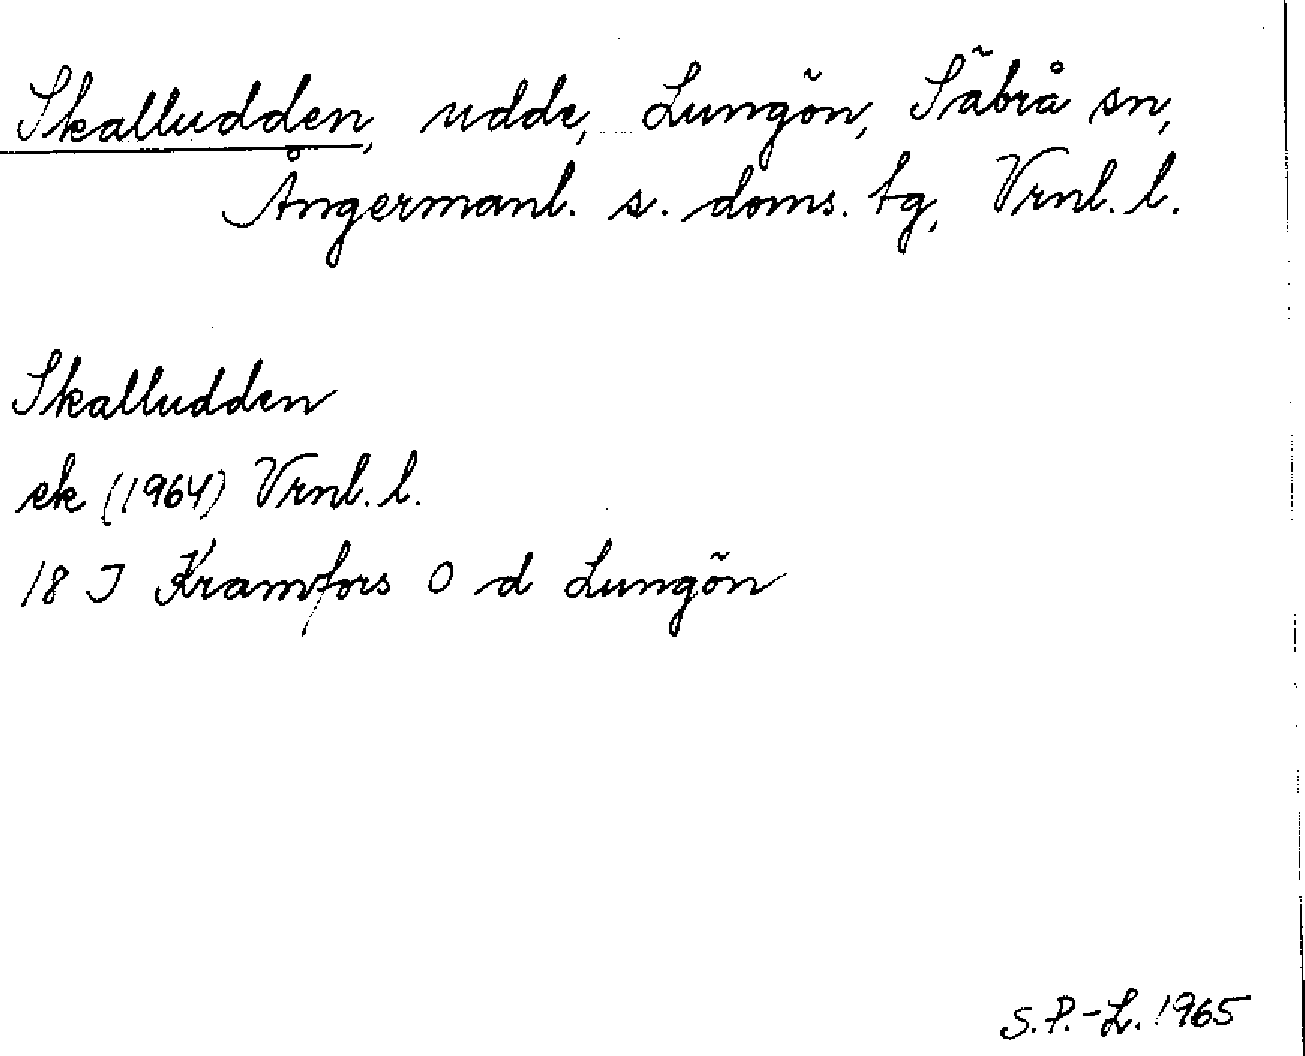 Skalludden, udde, Lungön, Säbrå sn,
Ångermanl. s. doms. tg, Vrnl. l.
Skalludden
ek (1964) Vrnl. l.
18 I Kramfors O d Lungön
S.P.-L. 1965